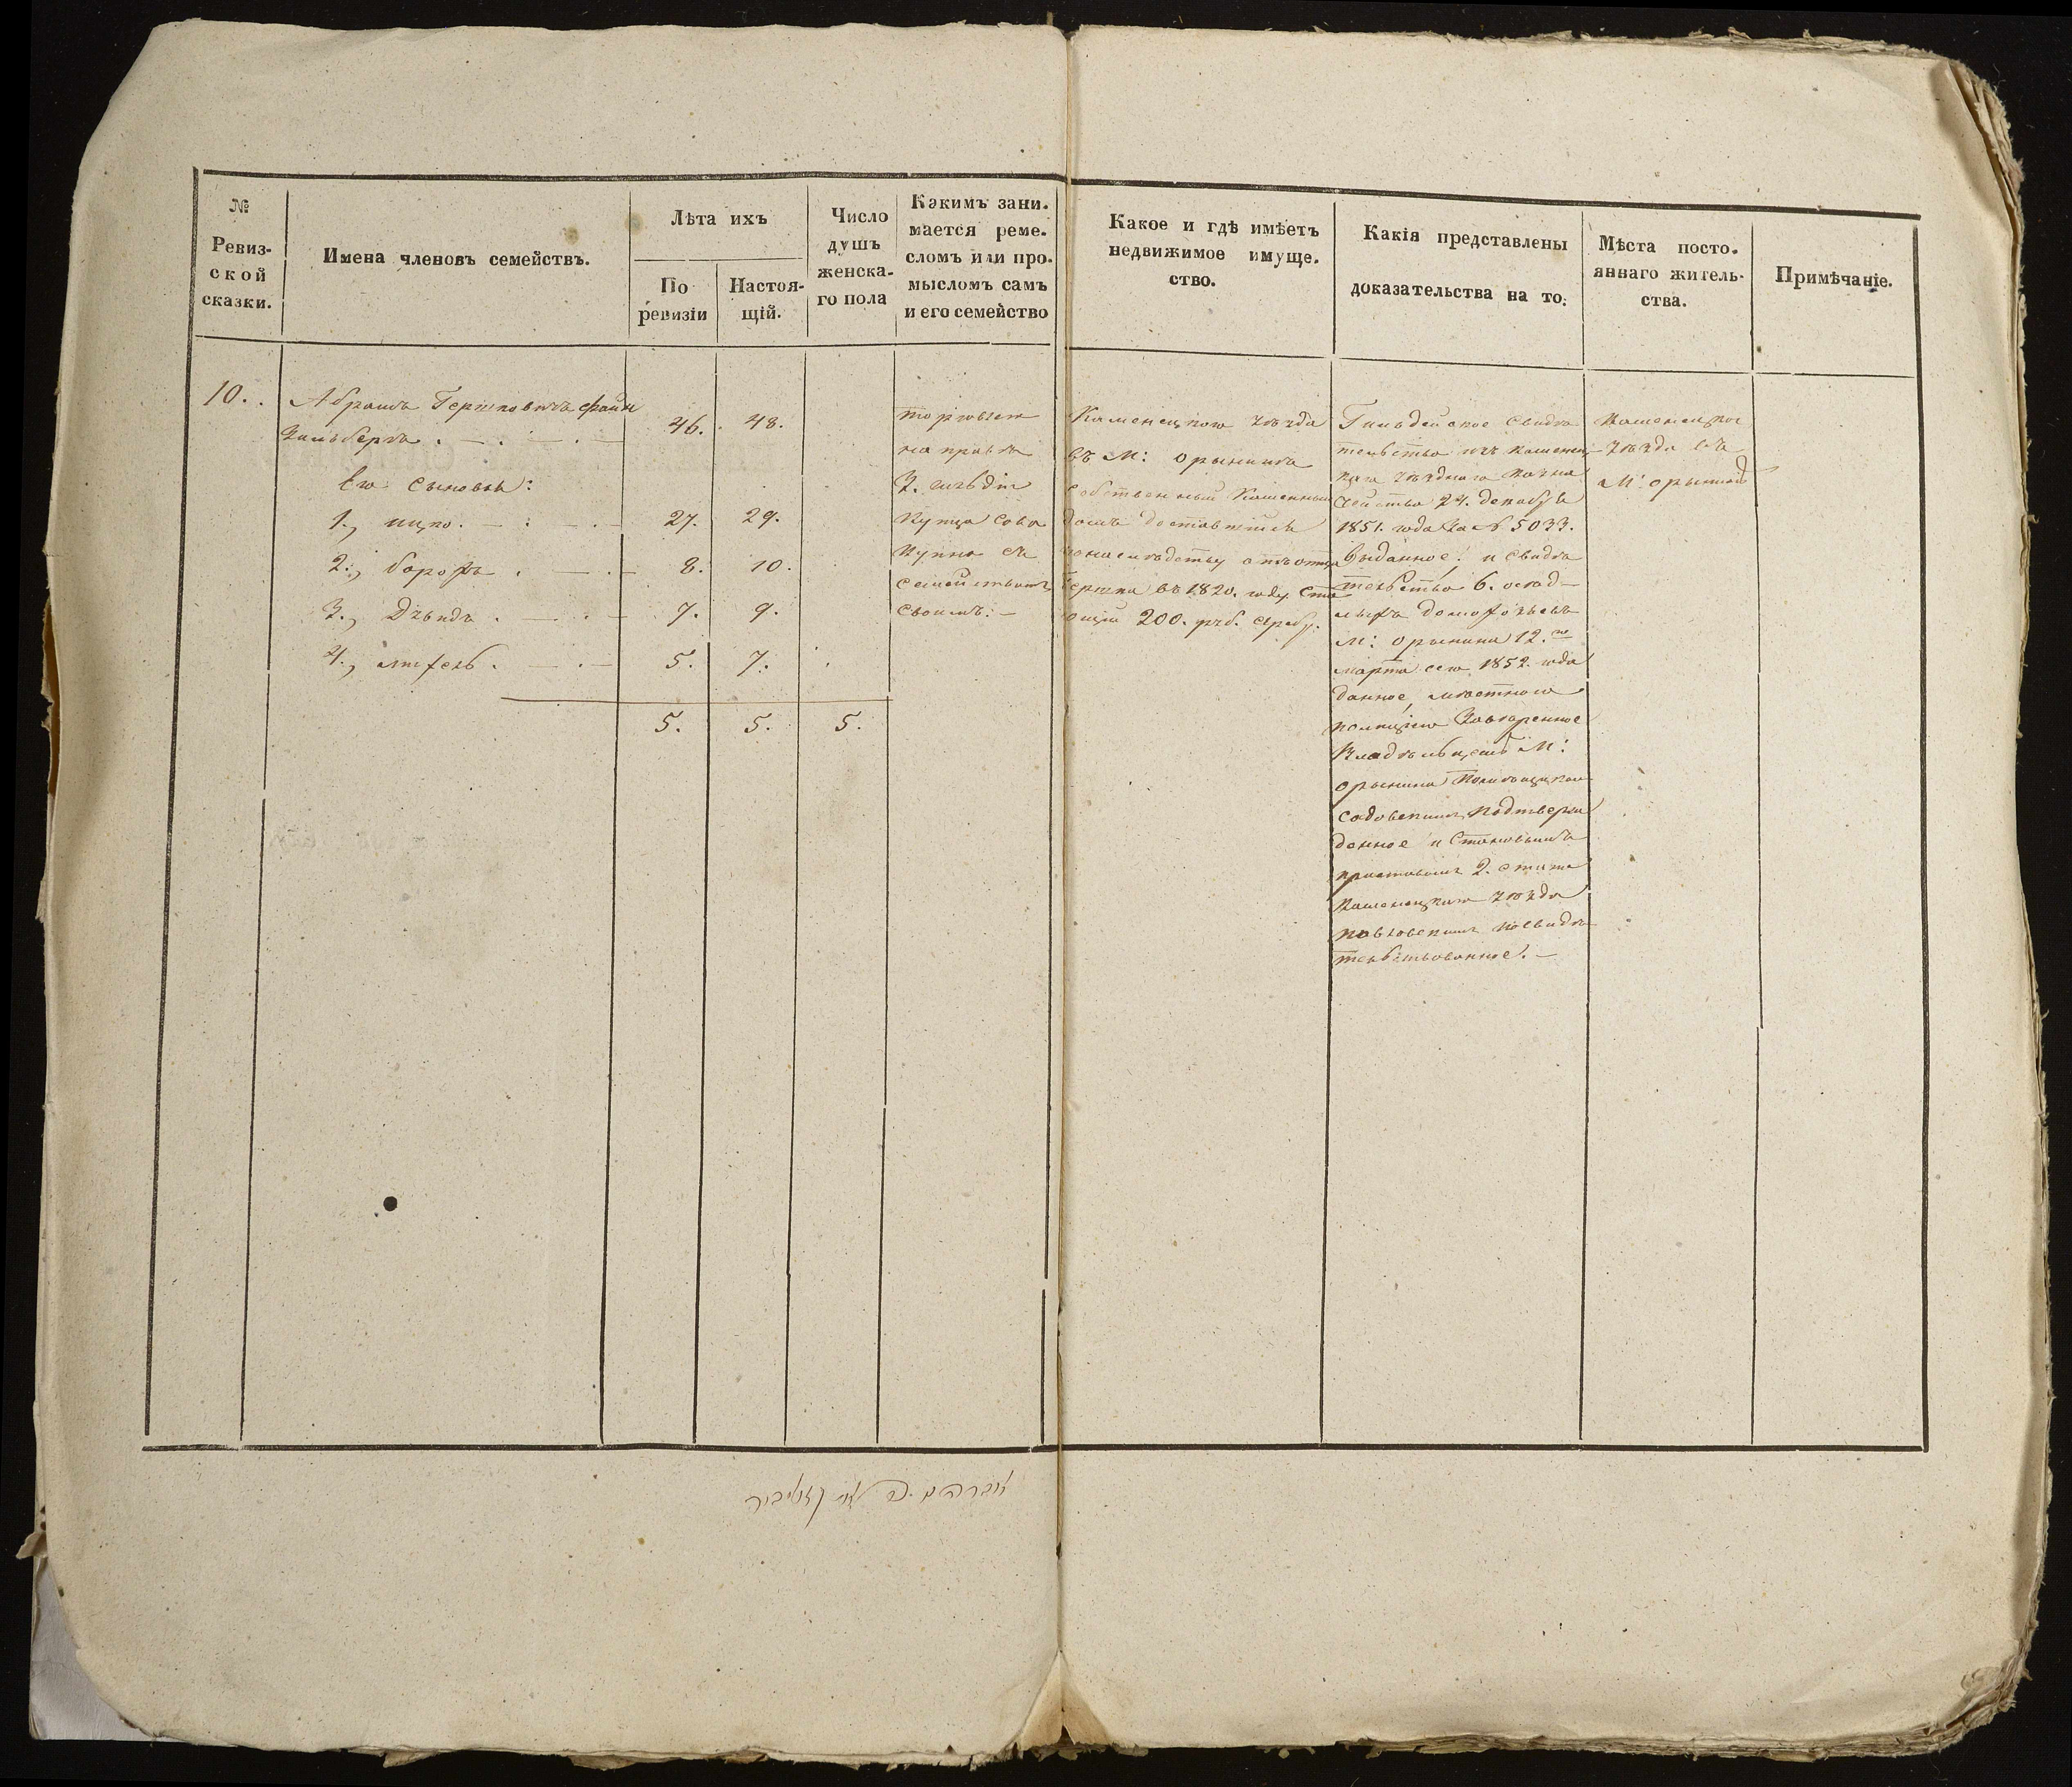 №
Ревиз-
ской
сказки.
Имена членовъ семействъ.
Лѣта ихъ
По
ревизіи
Настоя-
щій.
Число
душъ
женска-
го пола
Какимъ зани-
мается реме-
сломъ или про-
мысломъ самъ
и его семейство
Какое и гдѣ имѣетъ
недвижимое имуще-
ство.
Какія представлены
доказательства на то.
Мѣста посто-
яннаго житель-
ства.
Примѣчаніе.
10.
Абрамъ Гершковичъ Файн
зильбергъ 46. 48.
Его сыновья:
1., ицко. 27. 29.
2., борохъ 8. 10.
3., Дувидъ 7. 9.
4., 5. 7.
5. 5. 5.
торговлею
на правѣ
3. гильдіи
купца сово
купно съ
семействомъ
своимъ.
Каменецкого уѣзда
въ М: орынинѣ
собственный каменный
домъ доставшійся
по наслѣдству отъ отца
Гершка въ 1820. году сто
ющій 200. руб. сереб.
Гильдейское свидѣ
тельство изъ каменец
каго уѣзднаго казна
чейства 24. декабря
1851. года за № 5033.
выданное: и свидѣ
тельство 6. осѣд
лыхъ домохозяевъ
М: орынина 12.го
марта сего 1852. года
данное, мѣстною
полиціею завѣренное
владѣльцемъ М:
орынина
садовскимъ подтверж
денное и становымъ
приставомъ 2. стана
Каменецкаго уѣзда
посвидѣ
тельствованное.
Каменецкого
уѣзда въ
М: орынинѣ
אברהם